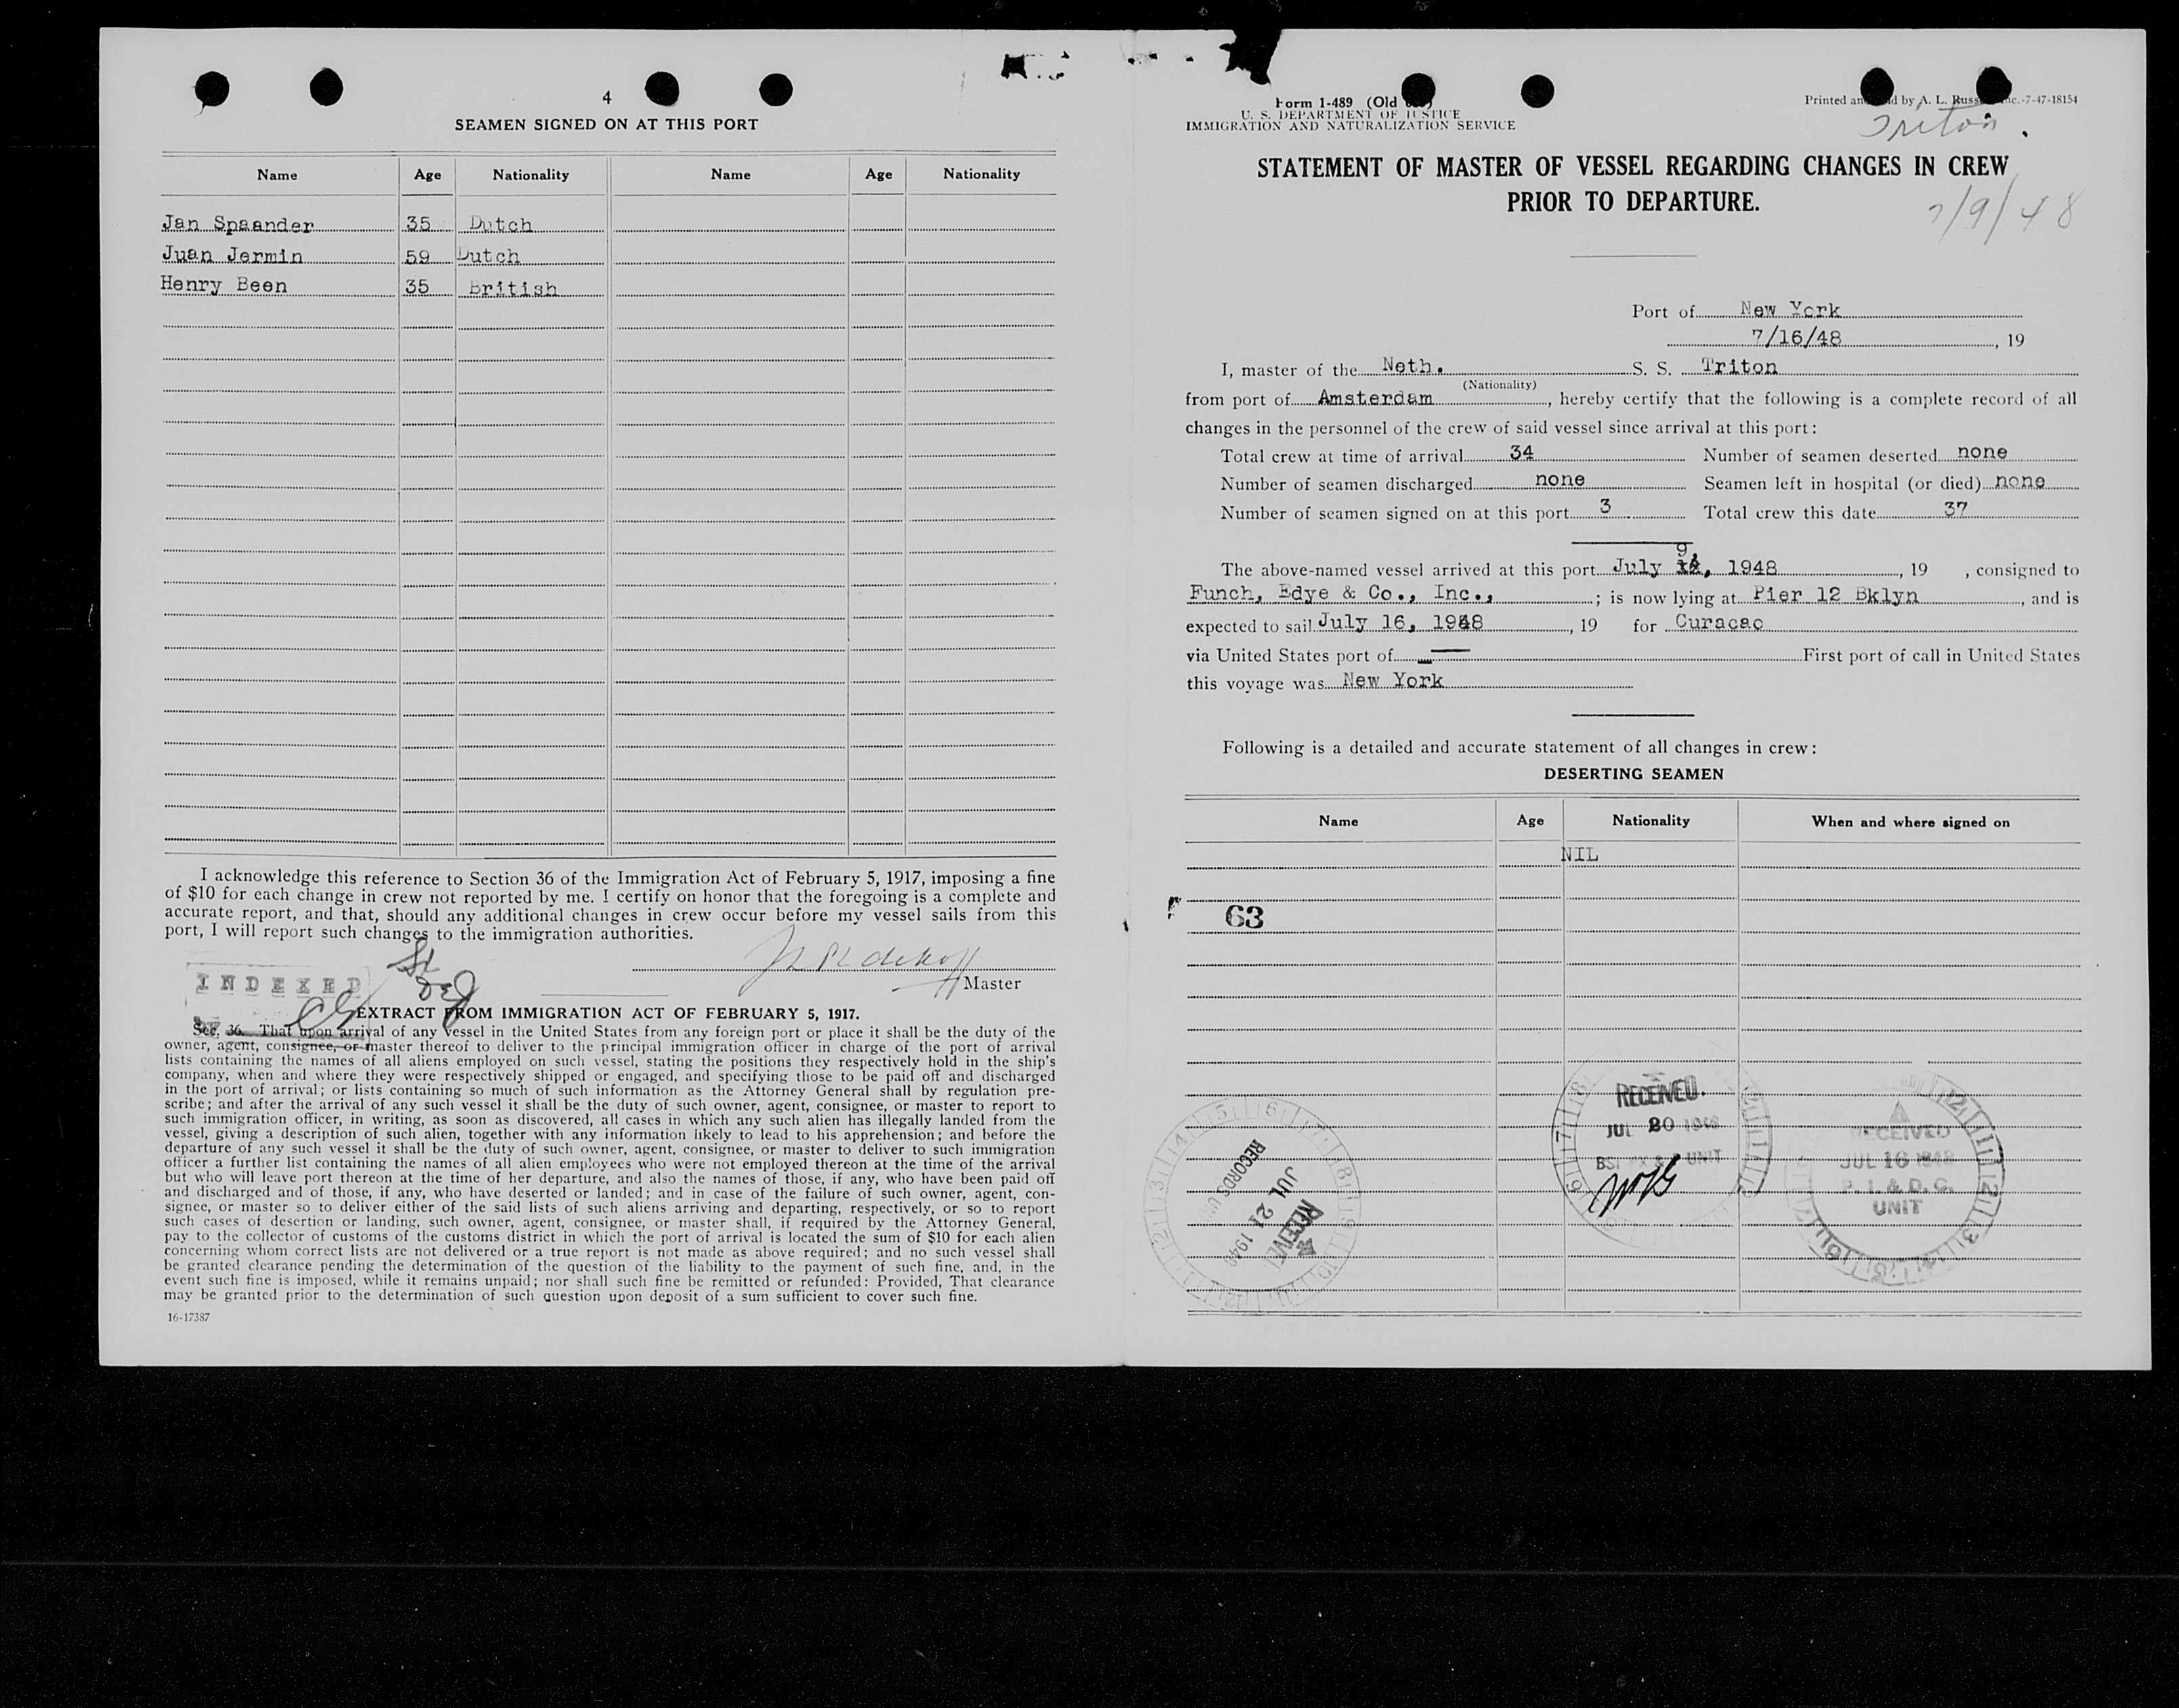 4
SEAMEN SIGNED ON AT THIS PORT
Name Age Nationality Name Age Nationality
Jan Spaander 35 Dutch
Juan Jermin 59 Dutch
Henry Been 35 British
I acknowledge this reference to Section 36 of the Immigration Act of February 5, 1917, imposing a fine
of $10 for each change in crew not reported by me. I certify on honor that the foregoing is a complete and
accurate report, and that, should any additional changes in crew occur before my vessel sails from this
port, I will report such changes to the immigration authorities.
Master
INDEXED
EXTRACT FROM IMMIGRATION ACT OF FEBRUARY 5, 1917.
Sec. 36. That upon arrival of any vessel in the United States from any foreign port or place it shall be the duty of the
owner, agent, consignee, or master thereof to deliver to the principal immigration officer in charge of the port of arrival
lists containing the names of all aliens employed on such vessel, stating the positions they respectively hold in the ship's
company, when and where they were respectively shipped or engaged, and specifying those to be paid off and discharged
in the port of arrival; or lists containing so much of such information as the Attorney General shall by regulation pre-
scribe; and after the arrival of any such vessel it shall be the duty of such owner, agent, consignee, or master to report to
such immigration officer, in writing, as soon as discovered, all cases in which any such alien has illegally landed from the
vessel, giving a description of such alien, together with any information likely to lead to his apprehension; and before the
departure of any such vessel it shall be the duty of such owner, agent, consignee, or master to deliver to such immigration
officer a further list containing the names of all alien employees who were not employed thereon at the time of the arrival
but who will leave port thereon at the time of her departure, and also the names of those, if any, who have been paid off
and discharged and of those, if any, who have deserted or landed; and in case of the failure of such owner, agent, con-
signee, or master so to deliver either of the said lists of such aliens arriving and departing, respectively, or so to report
such cases of desertion or landing, such owner, agent, consignee, or master shall, if required by the Attorney General,
pay to the collector of customs of the customs district in which the port of arrival is located the sum of $10 for each alien
concerning whom correct lists are not delivered or a true report is not made as above required; and no such vessel shall
be granted clearance pending the determination of the question of the liability to the payment of such fine, and, in the
event such fine is imposed, while it remains unpaid; nor shall such fine be remitted or refunded: Provided, That clearance
may be granted prior to the determination of such question upon deposit of a sum sufficient to cover such fine.
16-17387
Form I-489 (Old
U. S. DEPARTMENT OF JUSTICE
IMMIGRATION AND NATURALIZATION SERVICE
Printed and by A. L. Russ Inc.-7-47-18154
Triton.
STATEMENT OF MASTER OF VESSEL REGARDING CHANGES IN CREW
PRIOR TO DEPARTURE.
7/9/48
Port of New York
7/16/48, 19
I, master of the Neth. S. S. Triton
(Nationality)
from port of Amsterdam, hereby certify that the following is a complete record of all
changes in the personnel of the crew of said vessel since arrival at this port:
Total crew at time of arrival 34 Number of seamen deserted none
Number of seamen discharged none Seamen left in hospital (or died) none
Number of seamen signed on at this port 3 Total crew this date 37
The above-named vessel arrived at this port July 9, 1948, 19 , consigned to
Funch, Edye & Co., Inc., ; is now lying at Pier 12 Bklyn, and is
expected to sail July 16, 1948, 19 for Curacao
via United States port of — First port of call in United States
this voyage was New York
Following is a detailed and accurate statement of all changes in crew:
DESERTING SEAMEN
Name Age Nationality When and where signed on
NIL
63
RECEIVED
JUL 21 1948
RECORDS
RECEIVED.
JUL 20 1948
UNIT
RECEIVED
JUL 16 1948
P. I. & D. C.
UNIT